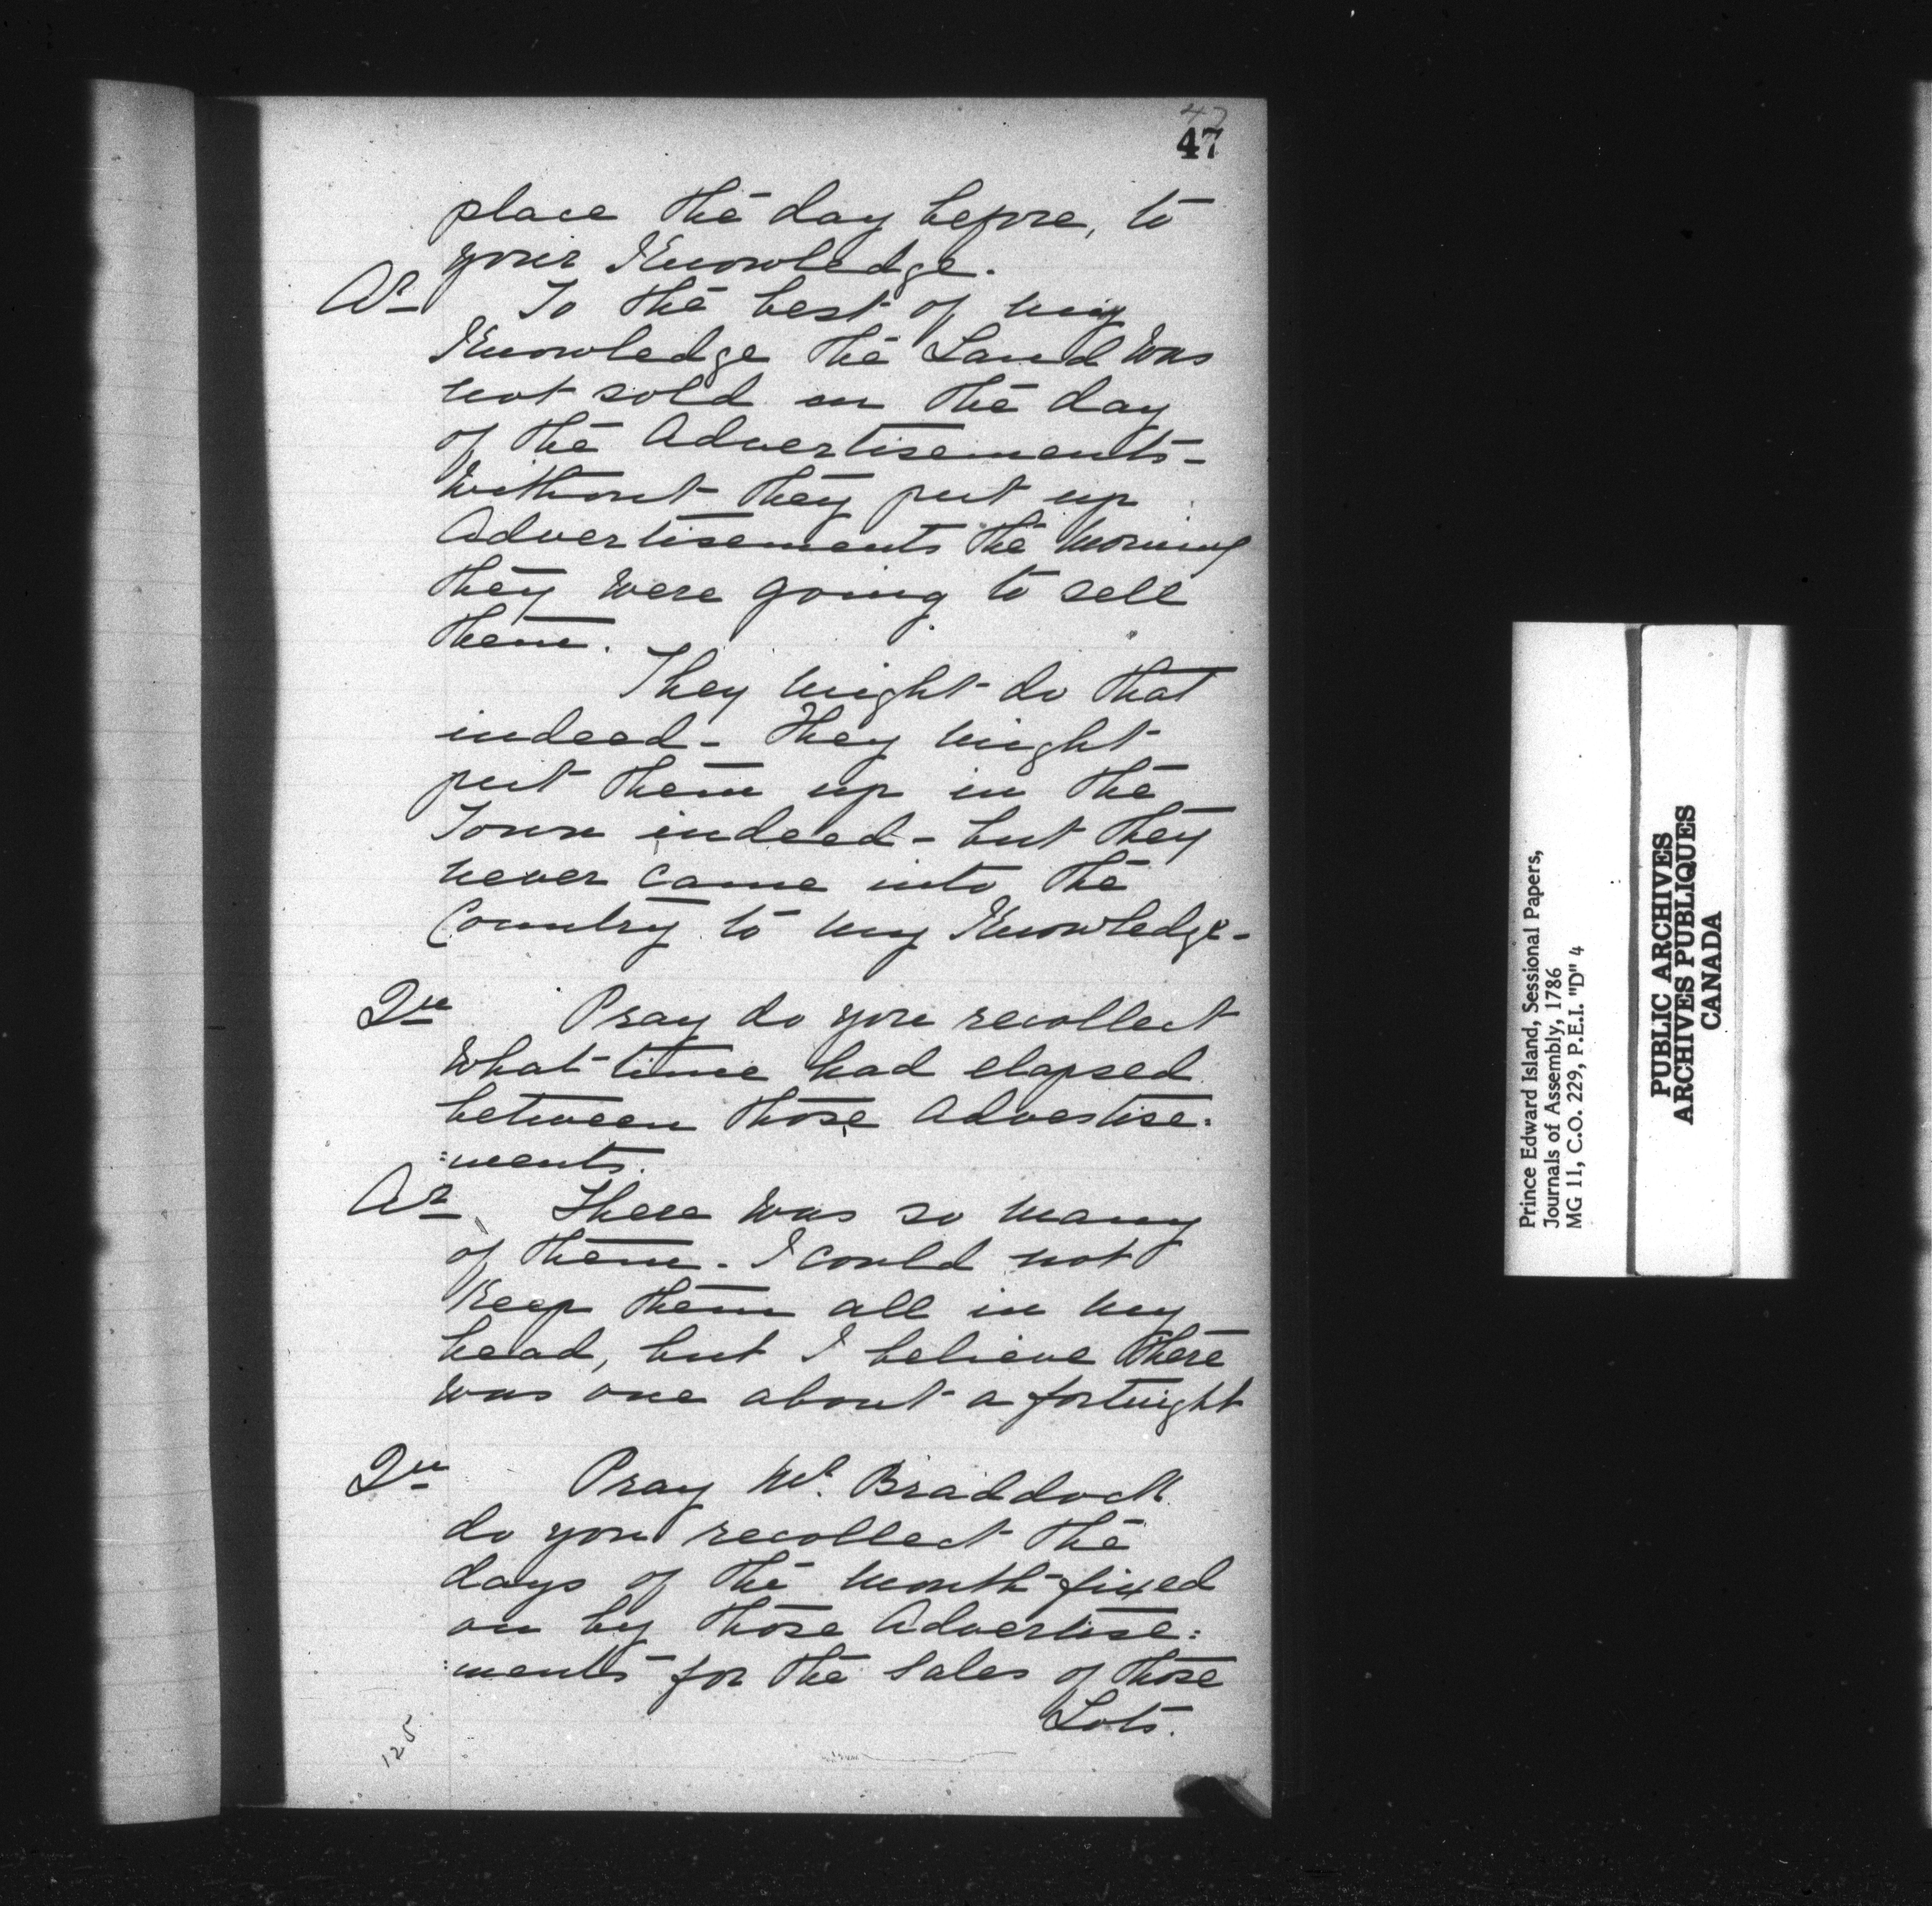 47
47
place the day before, to
your Knowledge.
Ar To the best of my
Knowledge the Land was
not sold on the day
of the Advertisements -
Without they put up
Advertisements the Morning
they were going to sell
them.
They might do that
indeed - They might
put them up in the
Town indeed - but they
never came into the
Country to my Knowledge -
Qu Pray do you recollect
What time had elapsed
between those Advertise:
:ments.
Ar There was so many
of them - I could not
Keep them all in my
head, but I believe there
was one about a fortnight
Qu Pray Mr. Braddock
do you recollect the
days of the Month fixed
on by those Advertise:
:ments for the Sales of those
Lots.
125
Prince Edward Island, Sessional Papers,
Journals of Assembly, 1786
MG 11, C.O. 229, P.E.I. "D" 4
PUBLIC ARCHIVES
ARCHIVES PUBLIQUES
CANADA